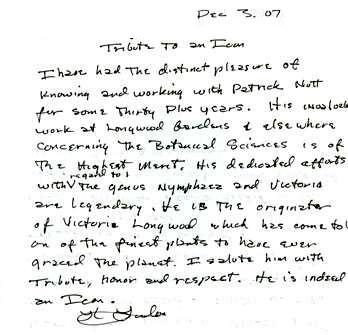 Dec 3, 07
Tribute To an Icon
I have had The distinct pleasure of
Knowing and working with Patrick Nutt
for some Thirty Plus years. His
work at Longwood Gardens & elsewhere
concerning The Botanical Sciences is of
The Highest Merit. His dedicated efforts
with regard to The genus Nymphaea and Victoria
are legendary. He is The originator
of Victoria Longwood which has come to
on of the finest plants to have ever
graced The planet. I salute him with
Tribute, Honor and respect. He is indeed
an Icon.